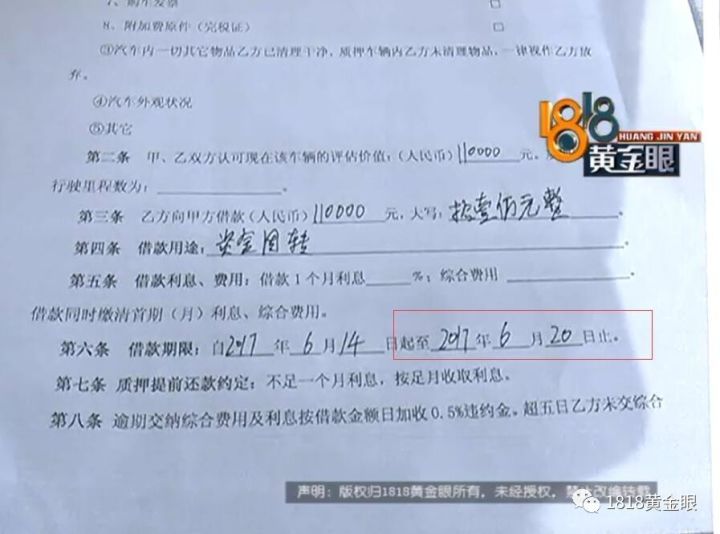 7、购车发票 □
8、附加费原件（完税证） □
③汽车内一切其它物品乙方已清理干净，质押车辆内乙方未清理物品，一律视作乙方放
弃。
④汽车外观状况
⑤其它
1818
HUANG JIN YAN
黄金眼
第二条 甲、乙双方认可现在该车辆的评估价值：（人民币）110000元。
行驶里程数为：
第三条 乙方向甲方借款（人民币）110000元，大写：拾壹佰元整。
第四条 借款用途：资金周转
第五条 借款利息、费用：借款1个月利息 %；综合费用
借款同时缴清首期（月）利息、综合费用。
第六条 借款期限：自2017年6月14日起至2017年6月20日止。
第七条 质押提前还款约定：不足一个月利息，按足月收取利息。
第八条 逾期交纳综合费用及利息按借款金额日加收0.5%违约金。超五日乙方未交综合
声明：版权归1818黄金眼所有，未经授权，禁止改编转载
1818黄金眼